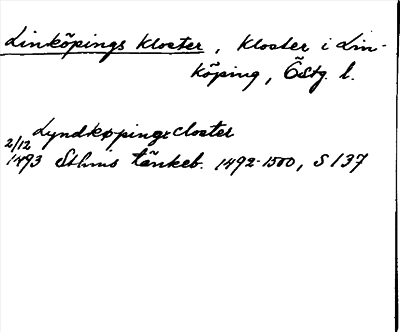 Linköpings kloster, kloster i Lin-
köping, Östg. l.
Lyndkøpings closter
2/12
1493 Sthms tänkeb. 1492-1500, S 137